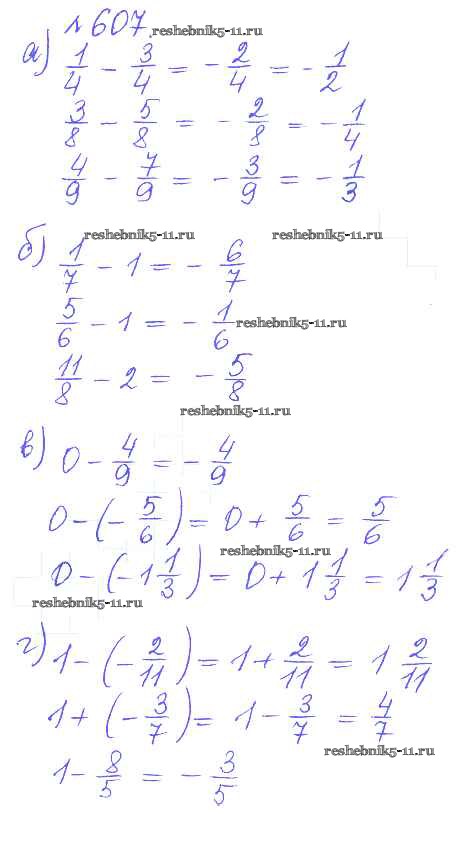 №607. reshebnik5-11.ru
а) 1/4 - 3/4 = - 2/4 = - 1/2
3/8 - 5/8 = - 2/8 = - 1/4
4/9 - 7/9 = - 3/9 = - 1/3
reshebnik5-11.ru reshebnik5-11.ru
б) 1/7 - 1 = - 6/7
5/6 - 1 = - 1/6 reshebnik5-11.ru
11/8 - 2 = - 5/8
reshebnik5-11.ru
в) 0 - 4/9 = - 4/9
0 - (- 5/6) = 0 + 5/6 = 5/6
reshebnik5-11.ru
0 - (-1 1/3) = 0 + 1 1/3 = 1 1/3
reshebnik5-11.ru
г) 1 - (- 2/11) = 1 + 2/11 = 1 2/11
1 + (- 3/7) = 1 - 3/7 = 4/7
reshebnik5-11.ru
1 - 8/5 = - 3/5